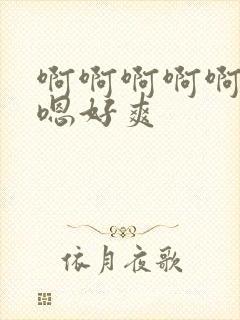 啊啊啊啊啊
嗯好爽
依月夜歌